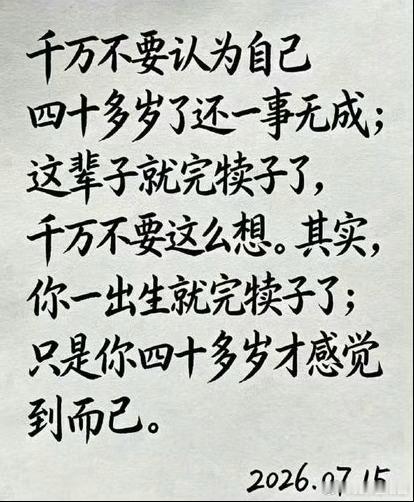 千万不要认为自己
四十多岁了还一事无成；
这辈子就完犊子了，
千万不要这么想。其实，
你一出生就完犊子了；
只是你四十多岁才感觉
到而已。
2026.07.15